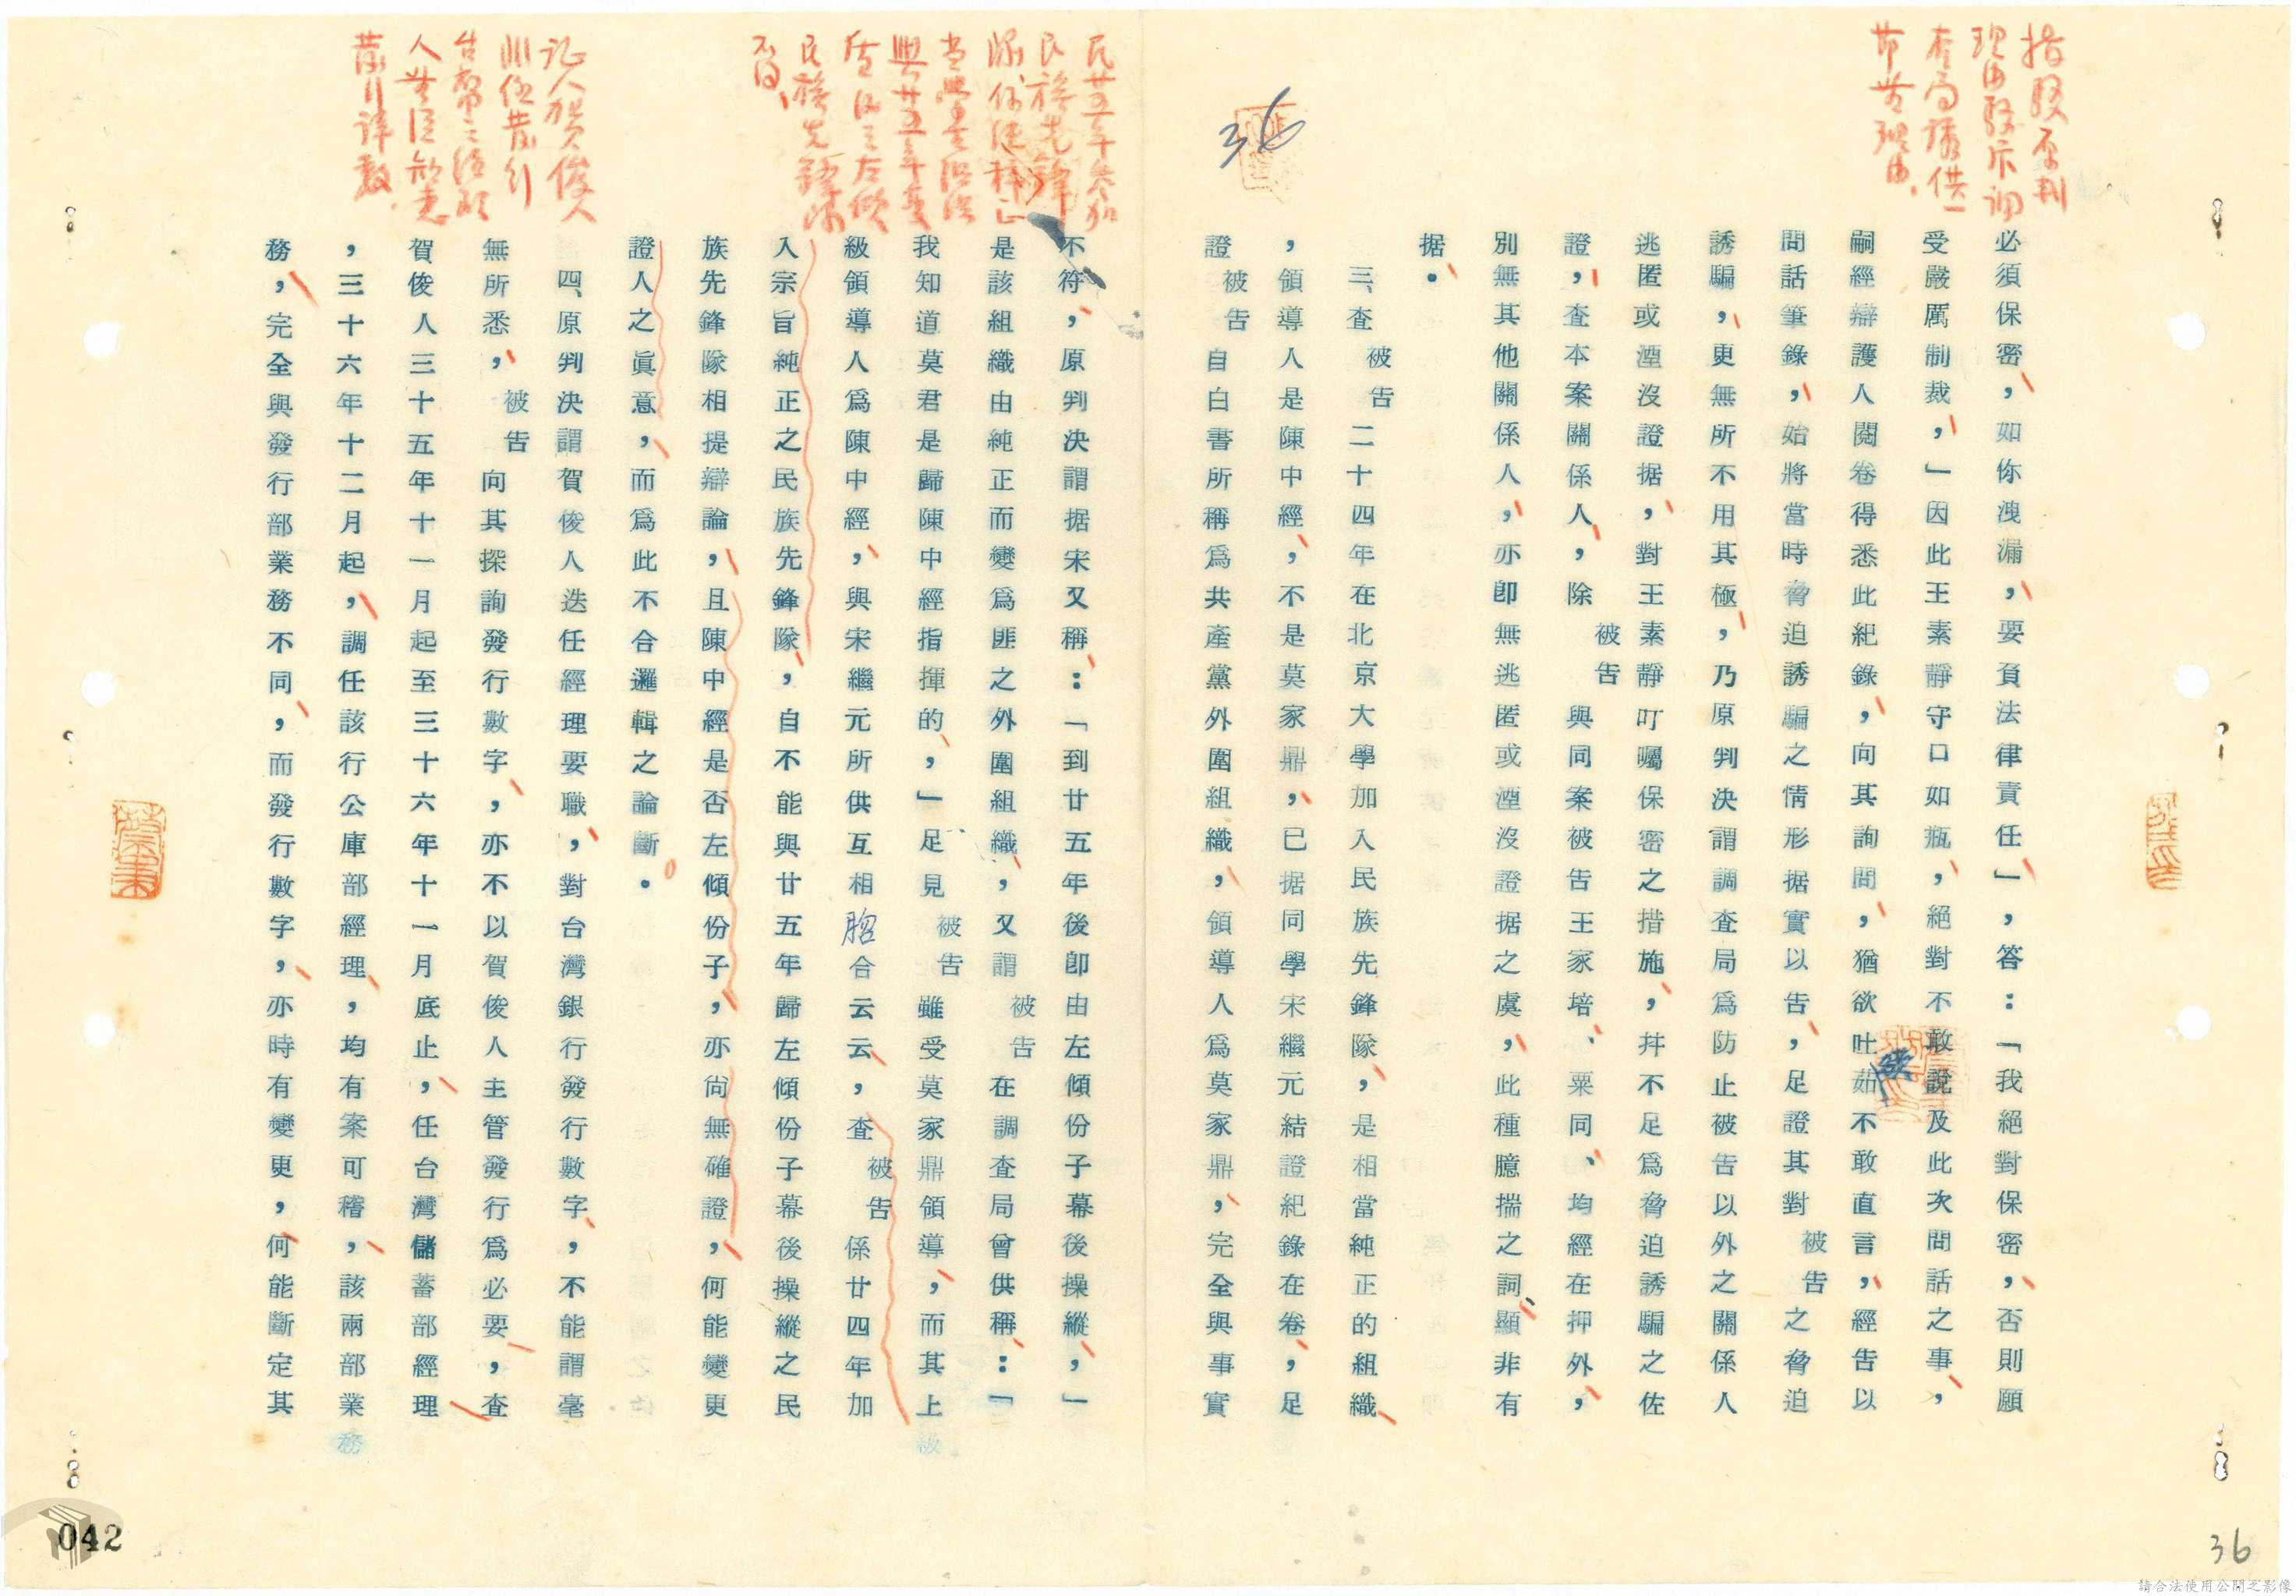 必須保密，如你洩漏，要負法律責任」，答：「我絕對保密，否則願
受嚴厲制裁，」因此王素靜守口如瓶，絕對不敢說及此次問話之事，
嗣經辯護人閱卷得悉此紀錄，向其詢問，猶欲吐茹不敢直言，經告以
問話筆錄，始將當時脅迫誘騙之情形据實以告，足證其對被告之脅迫
誘騙，更無所不用其極，乃原判決謂調查局為防止被告以外之關係人
逃匿或湮沒證据，對王素靜叮囑保密之措施，幷不足爲脅迫誘騙之佐
證，查本案關係人，除被告與同案被告王家培、粟同、均經在押外，
別無其他關係人，亦卽無逃匿或湮沒證据之虞，此種臆揣之詞、顯非有
据。
三、查被告二十四年在北京大學加入民族先鋒隊，是相當純正的組織
，領導人是陳中經，不是莫家鼎，已据同學宋繼元結證紀錄在卷，足
證被告自白書所稱爲共產黨外圍組織，領導人爲莫家鼎，完全與事實
不符，原判決謂据宋又稱：「到廿五年後卽由左傾份子幕後操縱，」
是該組織由純正而變爲匪之外圍組織，又謂被告在調查局曾供稱：「
我知道莫君是歸陳中經指揮的，」足見被告雖受莫家鼎領導，而其上級
級領導人爲陳中經，與宋繼元所供互相脗合云云，查被告係廿四年加
入宗旨純正之民族先鋒隊，自不能與廿五年歸左傾份子幕後操縱之民
族先鋒隊相提辯論，且陳中經是否左傾份子，亦尙無確證，何能變更
證人之眞意，而爲此不合邏輯之論斷。
四、原判決謂賀俊人迭任經理要職，對台灣銀行發行數字，不能謂毫
無所悉，被告向其探詢發行數字，亦不以賀俊人主管發行爲必要，查
賀俊人三十五年十一月起至三十六年十一月底止，任台灣儲蓄部經理
，三十六年十二月起，調任該行公庫部經理，均有案可稽，該兩部業務
務，完全與發行部業務不同，而發行數字，亦時有變更，何能斷定其
指駁原判
理由駁斥調
查局誘供一
節無理由、
36
民廿五年參加
民族先鋒
隊係純正
與廿五年變
民族先鋒隊
不同、
證人賀俊人
042
36
請合法使用公開之影像